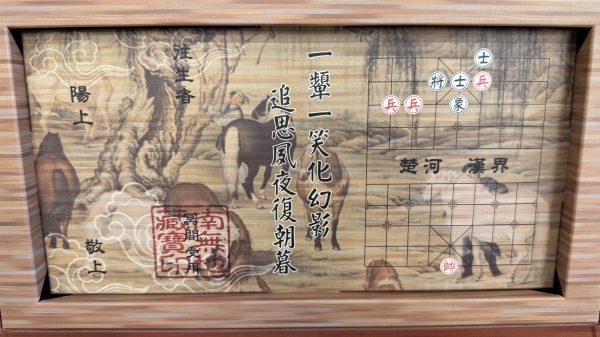 士
將 士 兵
兵 兵 象
楚河 漢界
帥
一顰一笑化幻影
追思夙夜復朝暮
往生者
陽上
敬上
南無
藏寶印
冥間受用